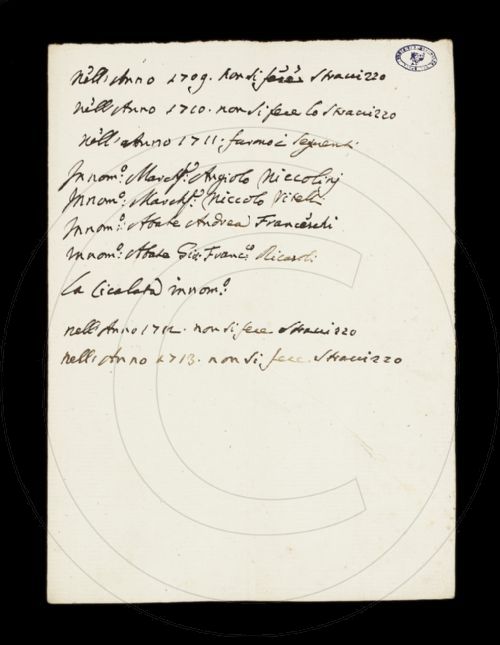 nell'Anno 1709. non si fece Stravizzo
nell'Anno 1710. non si fece lo Stravizzo
nell'Anno 1711. furono i seguenti
Innom.º March.º Angiolo Niccolini
Innom.º March.º Niccolo Vitelli
Innom.º Abate Andrea Franceschi
innom.º Abate Gio: Franc.º Ricasoli
La Cicalata innom.º
nell'Anno 1712. non si fece Stravizzo
nell'Anno 1713. non si fece Stravizzo